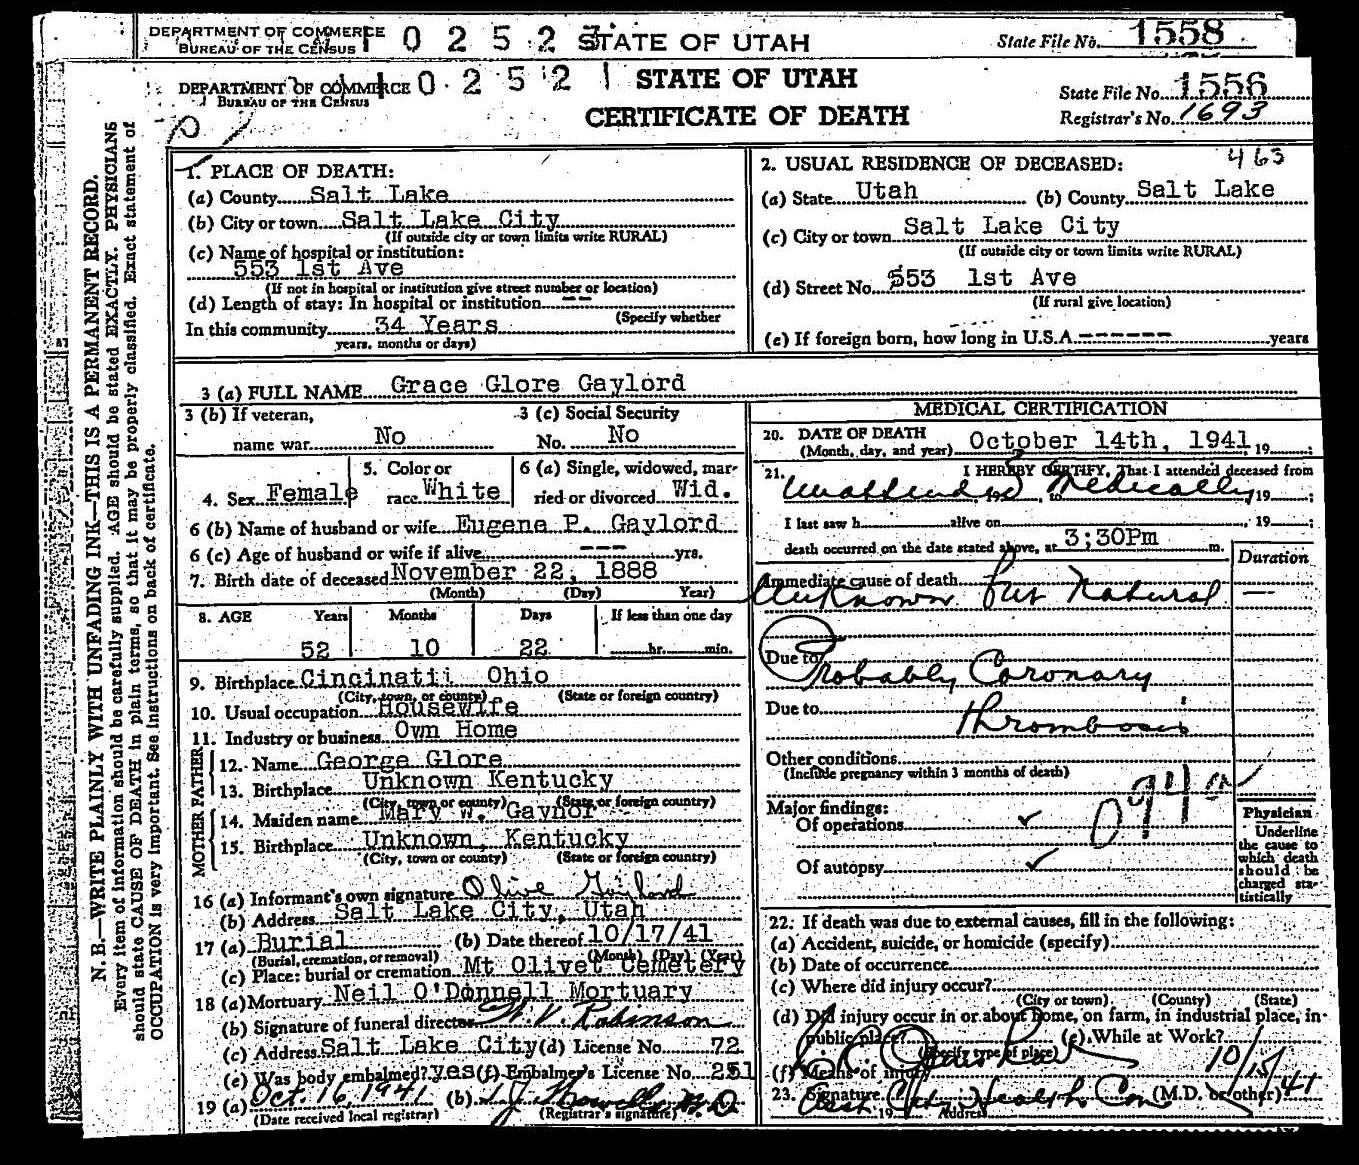 DEPARTMENT OF COMMERCE
BUREAU OF THE CENSUS
10252 STATE OF UTAH
State File No. 1558
DEPARTMENT OF COMMERCE
BUREAU OF THE CENSUS
10252 1 STATE OF UTAH
CERTIFICATE OF DEATH
State File No. 1556
Registrar's No. 1693
N. B.—WRITE PLAINLY WITH UNFADING INK—THIS IS A PERMANENT RECORD.
Every item of information should be carefully supplied. AGE should be stated EXACTLY. PHYSICIANS
should state CAUSE OF DEATH in plain terms, so that it may be properly classified. Exact statement of
OCCUPATION is very important. See instructions on back of certificate.
1. PLACE OF DEATH:
(a) County Salt Lake
(b) City or town Salt Lake City
(If outside city or town limits write RURAL)
(c) Name of hospital or institution:
553 1st Ave
(If not in hospital or institution give street number or location)
(d) Length of stay: In hospital or institution --
(Specify whether
In this community 34 Years
years, months or days)
2. USUAL RESIDENCE OF DECEASED: 463
(a) State Utah (b) County Salt Lake
(c) City or town Salt Lake City
(If outside city or town limits write RURAL)
(d) Street No. 553 1st Ave
(If rural give location)
(e) If foreign born, how long in U.S.A. ------ years
3 (a) FULL NAME Grace Glore Gaylord
3 (b) If veteran,
name war No
3 (c) Social Security
No. No
4. Sex Female
5. Color or
race White
6 (a) Single, widowed, mar-
ried or divorced Wid.
6 (b) Name of husband or wife Eugene P. Gaylord
6 (c) Age of husband or wife if alive --- yrs.
7. Birth date of deceased November 22, 1888
(Month) (Day) Year)
8. AGE Years Months Days If less than one day
52 10 22 hr. min.
9. Birthplace Cincinatti Ohio
(City, town, or county) (State or foreign country)
10. Usual occupation Housewife
11. Industry or business Own Home
FATHER
12. Name George Glore
13. Birthplace Unknown Kentucky
(City, town or county) (State or foreign country)
MOTHER
14. Maiden name Mary W. Gaynor
15. Birthplace Unknown, Kentucky
(City, town or county) (State or foreign country)
16 (a) Informant's own signature Olive Gaylord
(b) Address Salt Lake City, Utah
17 (a) Burial (b) Date thereof 10/17/41
(Burial, cremation, or removal) (Month) (Day) (Year)
(c) Place: burial or cremation Mt Olivet Cemetery
18 (a) Mortuary Neil O'Donnell Mortuary
(b) Signature of funeral director W. V. Robinson
(c) Address Salt Lake City (d) License No. 72
(e) Was body embalmed? yes (f) Embalmer's License No. 251
19 (a) Oct. 16, 1941 (b) M.D.
(Date received local registrar) (Registrar's signature)
MEDICAL CERTIFICATION
20. DATE OF DEATH
(Month, day, and year) October 14th, 1941, 19
21. I HEREBY CERTIFY, That I attended deceased from
Unattended 19 , to Medically, 19 ;
I last saw h alive on , 19 ;
death occurred on the date stated above, at 3;30Pm m.
Duration
Immediate cause of death
Unknown But Natural —
Due to
Probably Coronary
Due to
Thrombosis
Other conditions
(Include pregnancy within 3 months of death)
094a
Major findings:
Of operations ✓
Of autopsy ✓
Physician
Underline
the cause to
which death
should be
charged sta-
tistically
22. If death was due to external causes, fill in the following:
(a) Accident, suicide, or homicide (specify)
(b) Date of occurrence
(c) Where did injury occur?
(City or town) (County) (State)
(d) Did injury occur in or about home, on farm, in industrial place, in
public place? (e) While at Work?
(Specify type of place)
(f) Means of injury 10/15/41
23. Signature (M.D. or other)
Asst City Health Com
19 Address